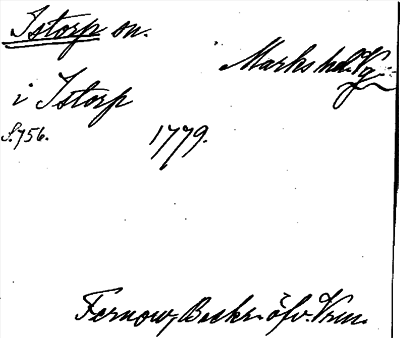 Istorp sn.
Marks hd. Vg
i Istorp
S. 756. 1779.
Fernow, Beskr. öfv. Vrm.